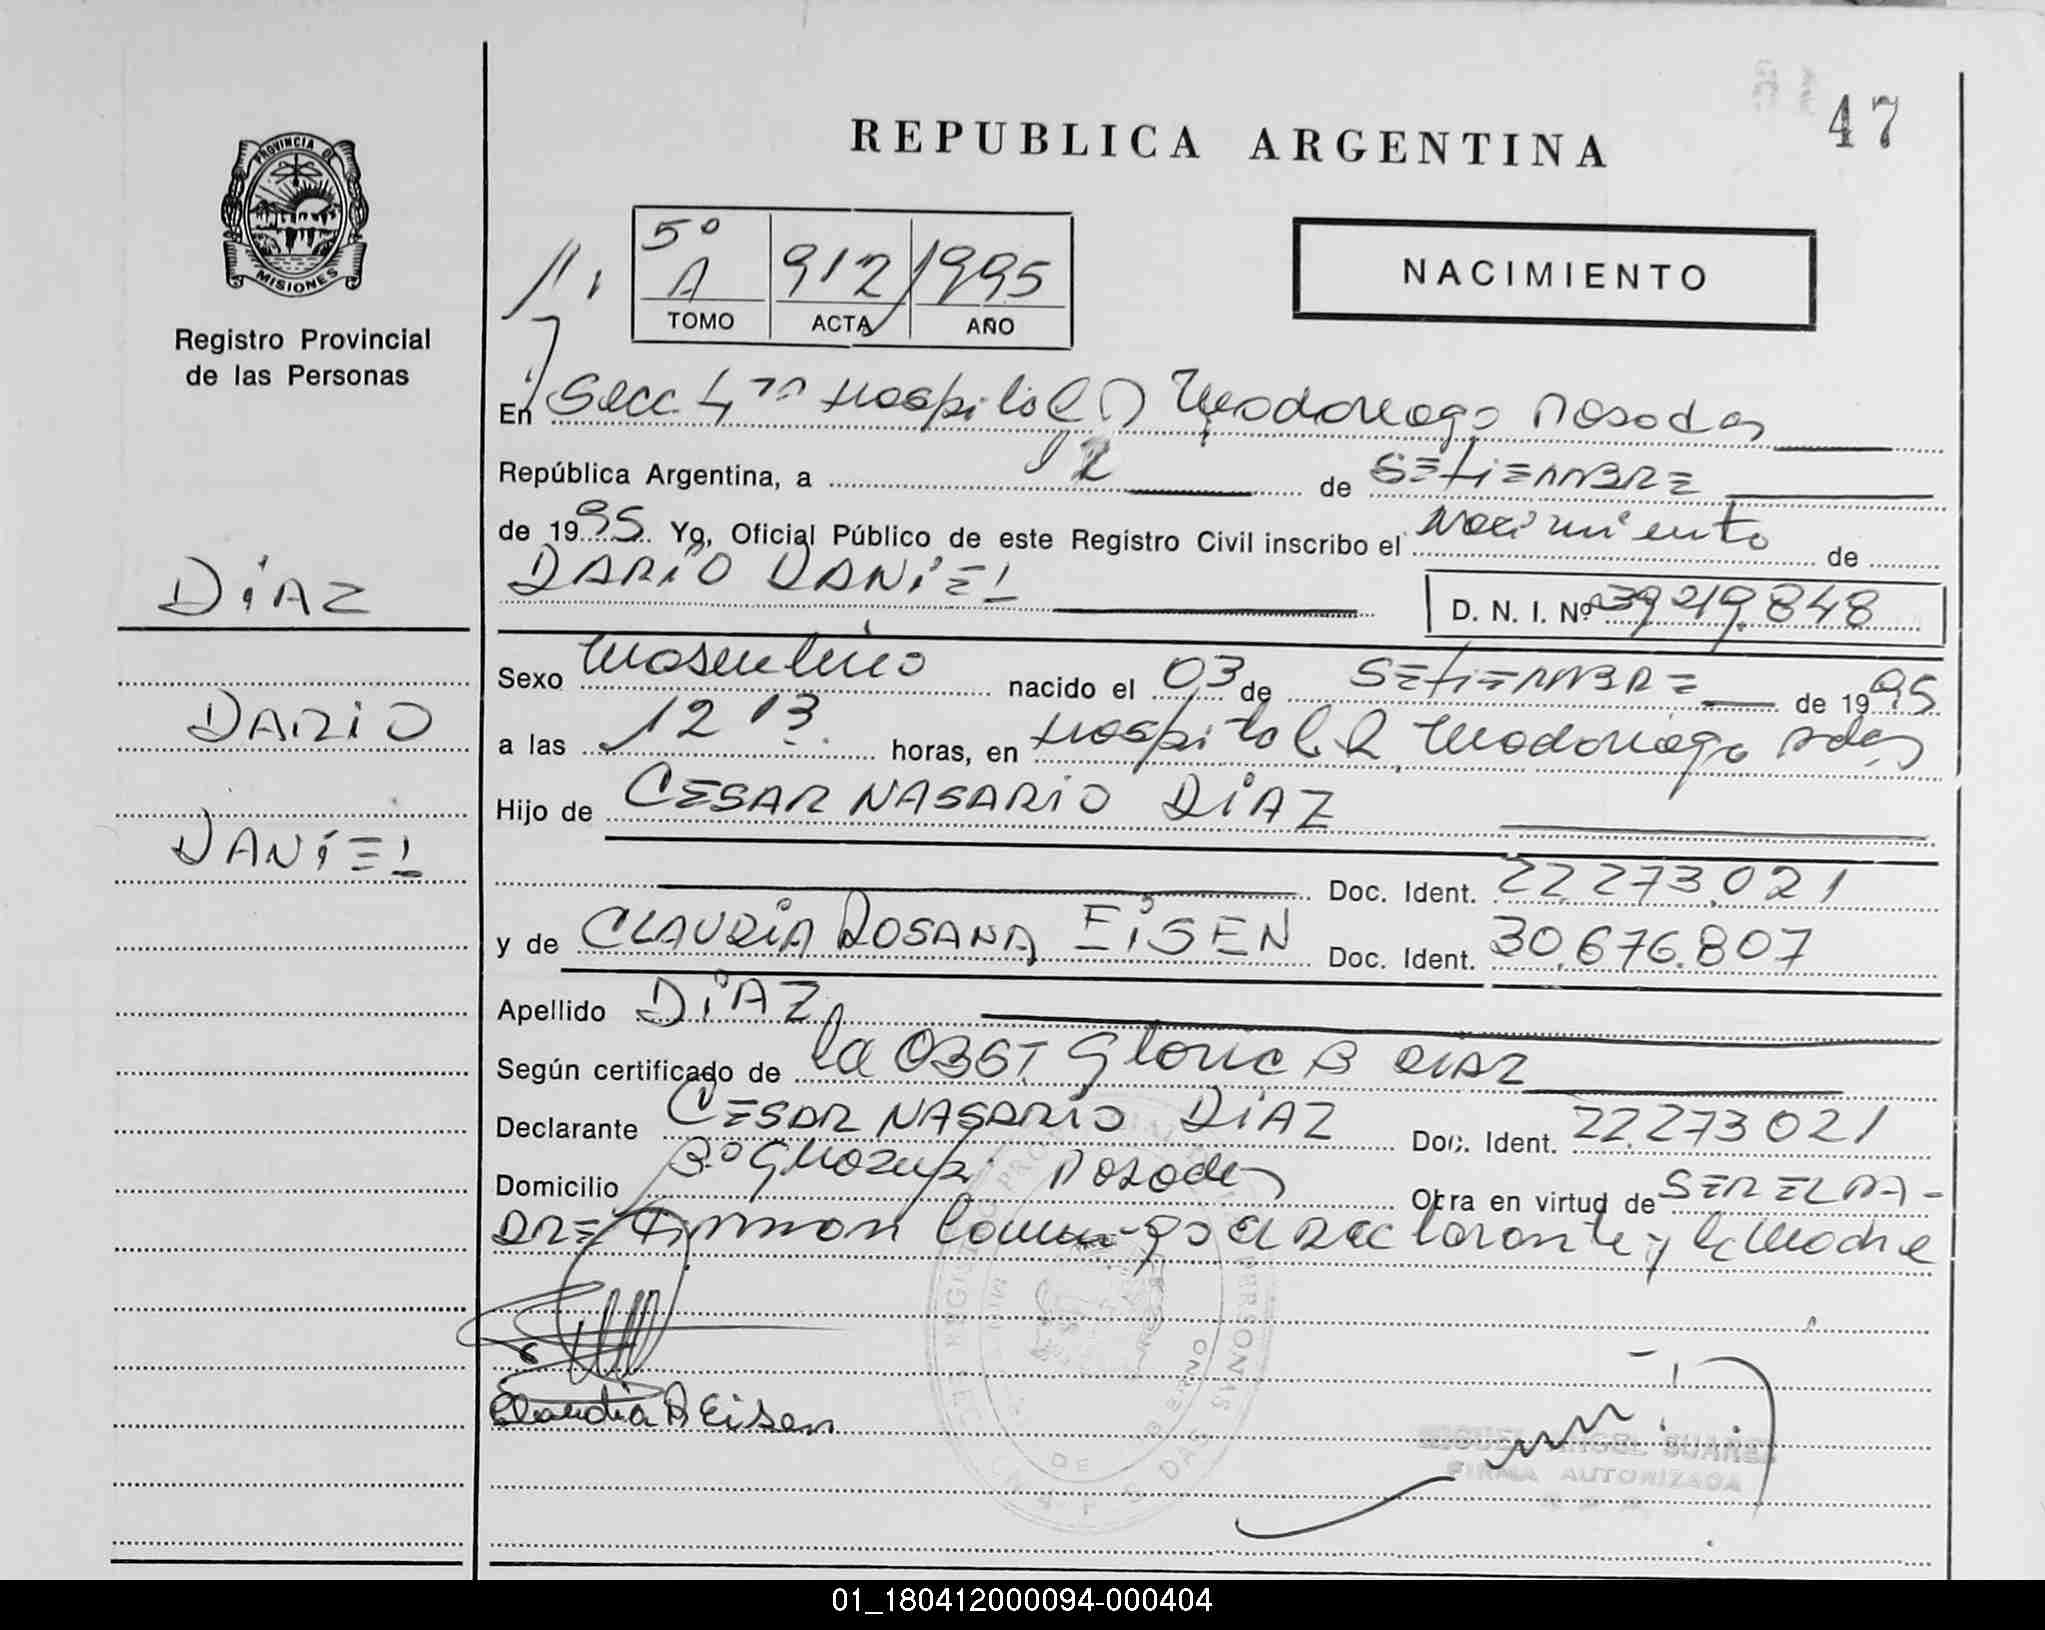 47
REPUBLICA ARGENTINA
PROVINCIA DE
MISIONES
Registro Provincial
de las Personas
5º
A 912 1995
TOMO ACTA AÑO
NACIMIENTO
En Secc 4ta Hospital R Madariaga Posadas
República Argentina, a 12 de SETIEMBRE
de 1995 Yo, Oficial Público de este Registro Civil inscribo el Nacimiento de
DARIO DANIEL
D. N. I. Nº 39219.848
DIAZ
DARIO
DANIEL
Sexo Masculino nacido el 03 de SETIEMBRE de 1995
a las 12 13 horas, en Hospital R Madariaga Pdas
Hijo de CESAR NASARIO DIAZ
Doc. Ident. 22.273.021
y de CLAUDIA ROSANA EISEN Doc. Ident. 30.676.807
Apellido DIAZ
Según certificado de la OBST Gloria B DIAZ
Declarante CESAR NASARIO DIAZ Doc. Ident. 22.273021
Domicilio Bº Posadas Obra en virtud de SER EL PA-
DRE Firman conmigo el Declarante y la Madre
Claudia R Eisen
FIRMA AUTORIZADA
01_180412000094-000404